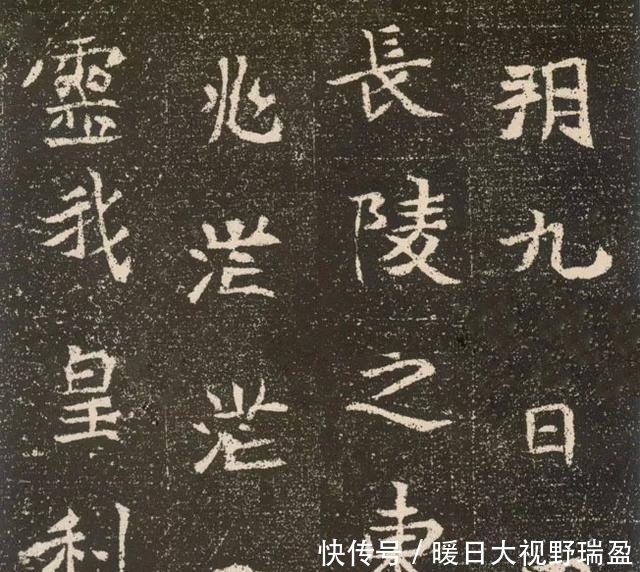 朔九日
長陵之東
兆茫茫
靈我皇利
快传号 / 暖日大视野瑞盈